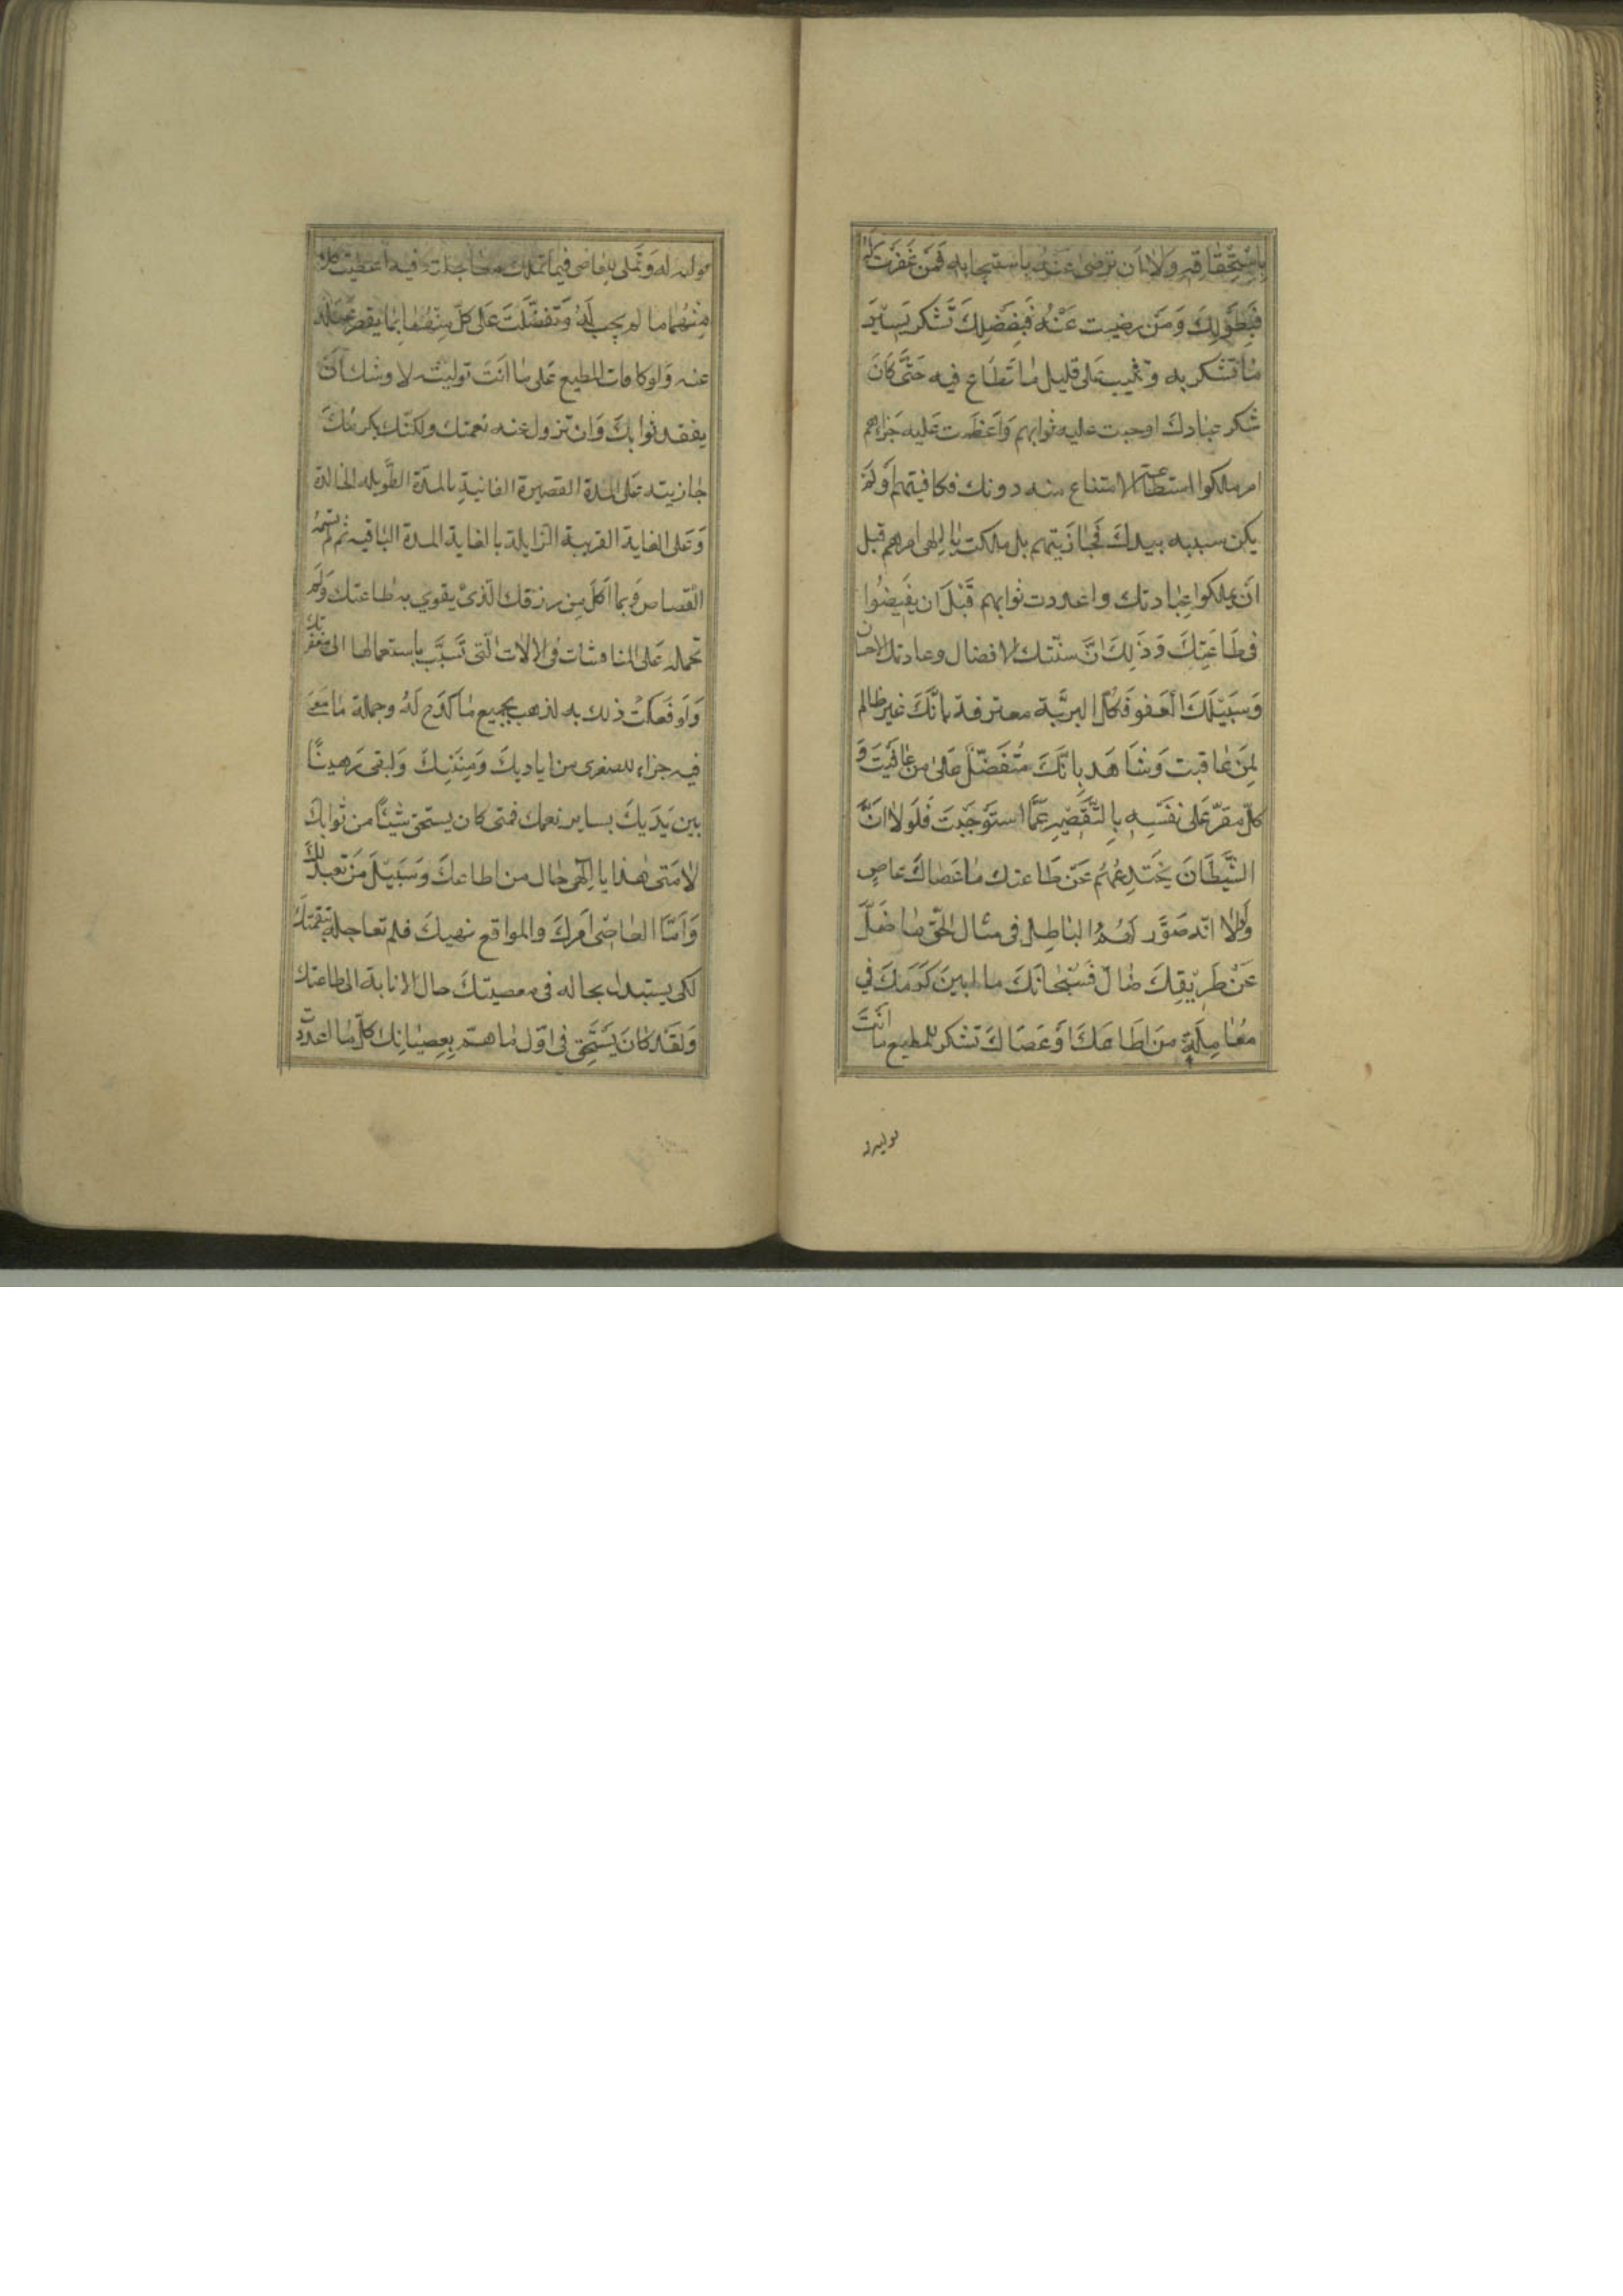 باستحقاقه ولا ان ترضى عنه باستيجابه فمن غفرت له
فبطولك ومن رضيت عنه فبفضلك تشكر يسير
ما تشكر به وتثيب على قليل ما تطاع فيه حتى كان
شكر عبادك اوجبت عليه ثوابهم واعظمت عليه جزاءهم
امر ملكوا استطاعة الامتناع منه دونك فكافيتهم او لم
يكن سببه بيدك فجازيتهم بل ملكت يا الهى امرهم قبل
ان يملكوا عبادتك واعددت ثوابهم قبل ان يفيضوا
فى طاعتك وذلك ان سنتك الافضال وعادتك الاحسان
وسبيلك العفو فكل البرية معترفة بانك غير ظالم
لمن عاقبت وشاهد بانك متفضل على من عافيت و
كل مقر على نفسه بالتقصير عما استوجبت فلولا ان
الشيطان يختدعهم عن طاعتك ما عصاك عاص
ولولا انه صور لهم الباطل فى مثال الحق ما ضل
عن طريقك ضال فسبحانك ما ابين كرمك في
معاملة من اطاعك او عصاك تشكر للمطيع ما انت
توليته
توليته له وتملى للعاصى فيما تملك معاجلته فيه اعطيت كلا
منهما ما لم يجب له وتفضلت على كل منهما بما يقصر عمله
عنه ولو كافات المطيع على ما انت توليته لاوشك ان
يفقد ثوابك وان تزول عنه نعمتك ولكنك بكرمك
جازيته على المدة القصيرة الفانية بالمدة الطويله الخالدة
وعلى الغاية القريبة الزايلة بالغاية المدة الباقيه ثم لم تسمه
القصاص فيما اكل من رزقك الذى يقوي به طاعتك ولم
تحمله على المناقشات فى الالات التى تسبب باستعمالها الى مغفرتك
ولو فعلت ذلك به لذهب بجميع ما كدح له وجملة ما سعى
فيه جزاء للصغرى من اياديك ومننك ولبقى رهينا
بين يديك بساير نعمك فمتى كان يستحق شيئا من ثوابك
لا متى هذا يا الهى حال من اطاعك وسبيل من تعبد لك
واما العاصى امرك والمواقع نهيك فلم تعاجله بنقمتك
لكى يستبدل بحاله فى معصيتك حال الانابة الى طاعتك
ولقد كان يستحق فى اول ما هم بعصيانك كل ما اعددت